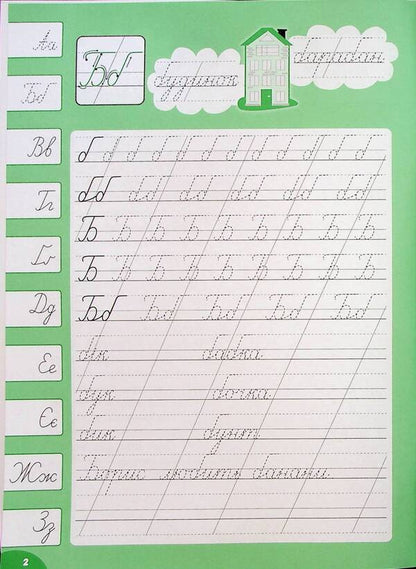 Аа
Бб
Вв
Гг
Ґґ
Дд
Ее
Єє
Жж
Зз
Бб
будинок
барабан
б б б б б б б б б б б б
бб бб бб бб бб бб
Б Б Б Б Б Б Б Б Б
Б Б Б Б Б Б Б Б Б
Бб Бб Бб Бб Бб
бік бабка
бук бочка
бик бунт
Борис любить банани.
2